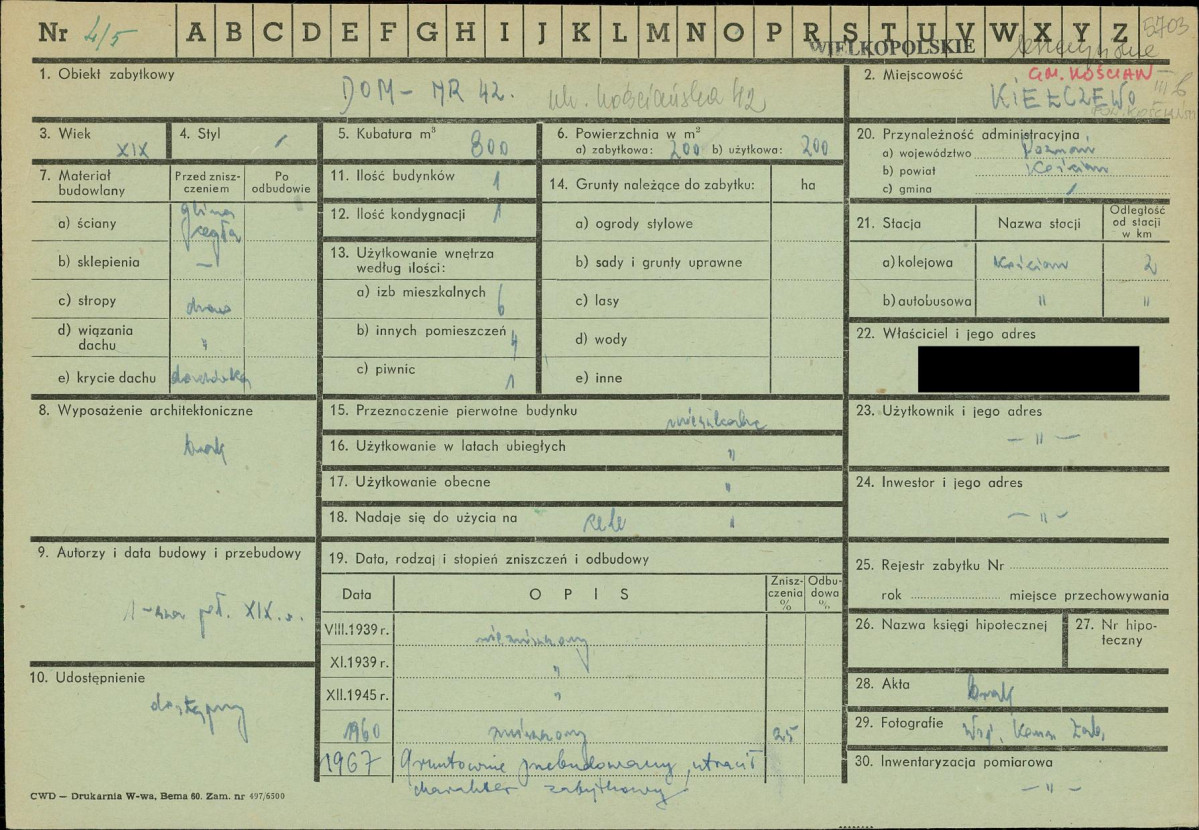 Nr 4/5 A B C D E F G H I J K L M N O P R S T U V W X Y Z 5703
WIELKOPOLSKIE
1. Obiekt zabytkowy
DOM – NR 42. ul. Kościańska 42
2. Miejscowość GM. KOŚCIAN
KIEŁCZEWO
3. Wiek
XIX
4. Styl
/
5. Kubatura m³
800
6. Powierzchnia w m²
a) zabytkowa: 200 b) użytkowa: 200
20. Przynależność administracyjna
a) województwo Poznań
b) powiat Kościan
c) gmina /
7. Materiał budowlany
Przed zniszczeniem
Po odbudowie
a) ściany glina cegła
b) sklepienia —
c) stropy drewno
d) wiązania dachu "
e) krycie dachu dachówka
11. Ilość budynków 1
12. Ilość kondygnacji 1
13. Użytkowanie wnętrza według ilości:
a) izb mieszkalnych 6
b) innych pomieszczeń 4
c) piwnic 1
14. Grunty należące do zabytku: ha
a) ogrody stylowe
b) sady i grunty uprawne
c) lasy
d) wody
e) inne
21. Stacja Nazwa stacji Odległość od stacji w km
a) kolejowa Kościan 2
b) autobusowa " "
22. Właściciel i jego adres
8. Wyposażenie architektoniczne
brak
15. Przeznaczenie pierwotne budynku mieszkalne
16. Użytkowanie w latach ubiegłych "
17. Użytkowanie obecne "
18. Nadaje się do użycia na cele "
23. Użytkownik i jego adres
— " —
24. Inwestor i jego adres
— " —
9. Autorzy i data budowy i przebudowy
1-sza poł. XIX w.
19. Data, rodzaj i stopień zniszczeń i odbudowy
Data OPIS Zniszczenia % Odbudowa %
VIII.1939 r. niezniszczony
XI.1939 r. "
XII.1945 r. "
1960 zniszczony 25
1967 Gruntownie przebudowany, utracił
charakter zabytkowy
25. Rejestr zabytku Nr
rok miejsce przechowywania
26. Nazwa księgi hipotecznej
27. Nr hipoteczny
10. Udostępnienie
dostępny
28. Akta brak
29. Fotografie Woj. Kons. Zab.
30. Inwentaryzacja pomiarowa
— " —
CWD — Drukarnia W-wa, Bema 60. Zam. nr 497/6500